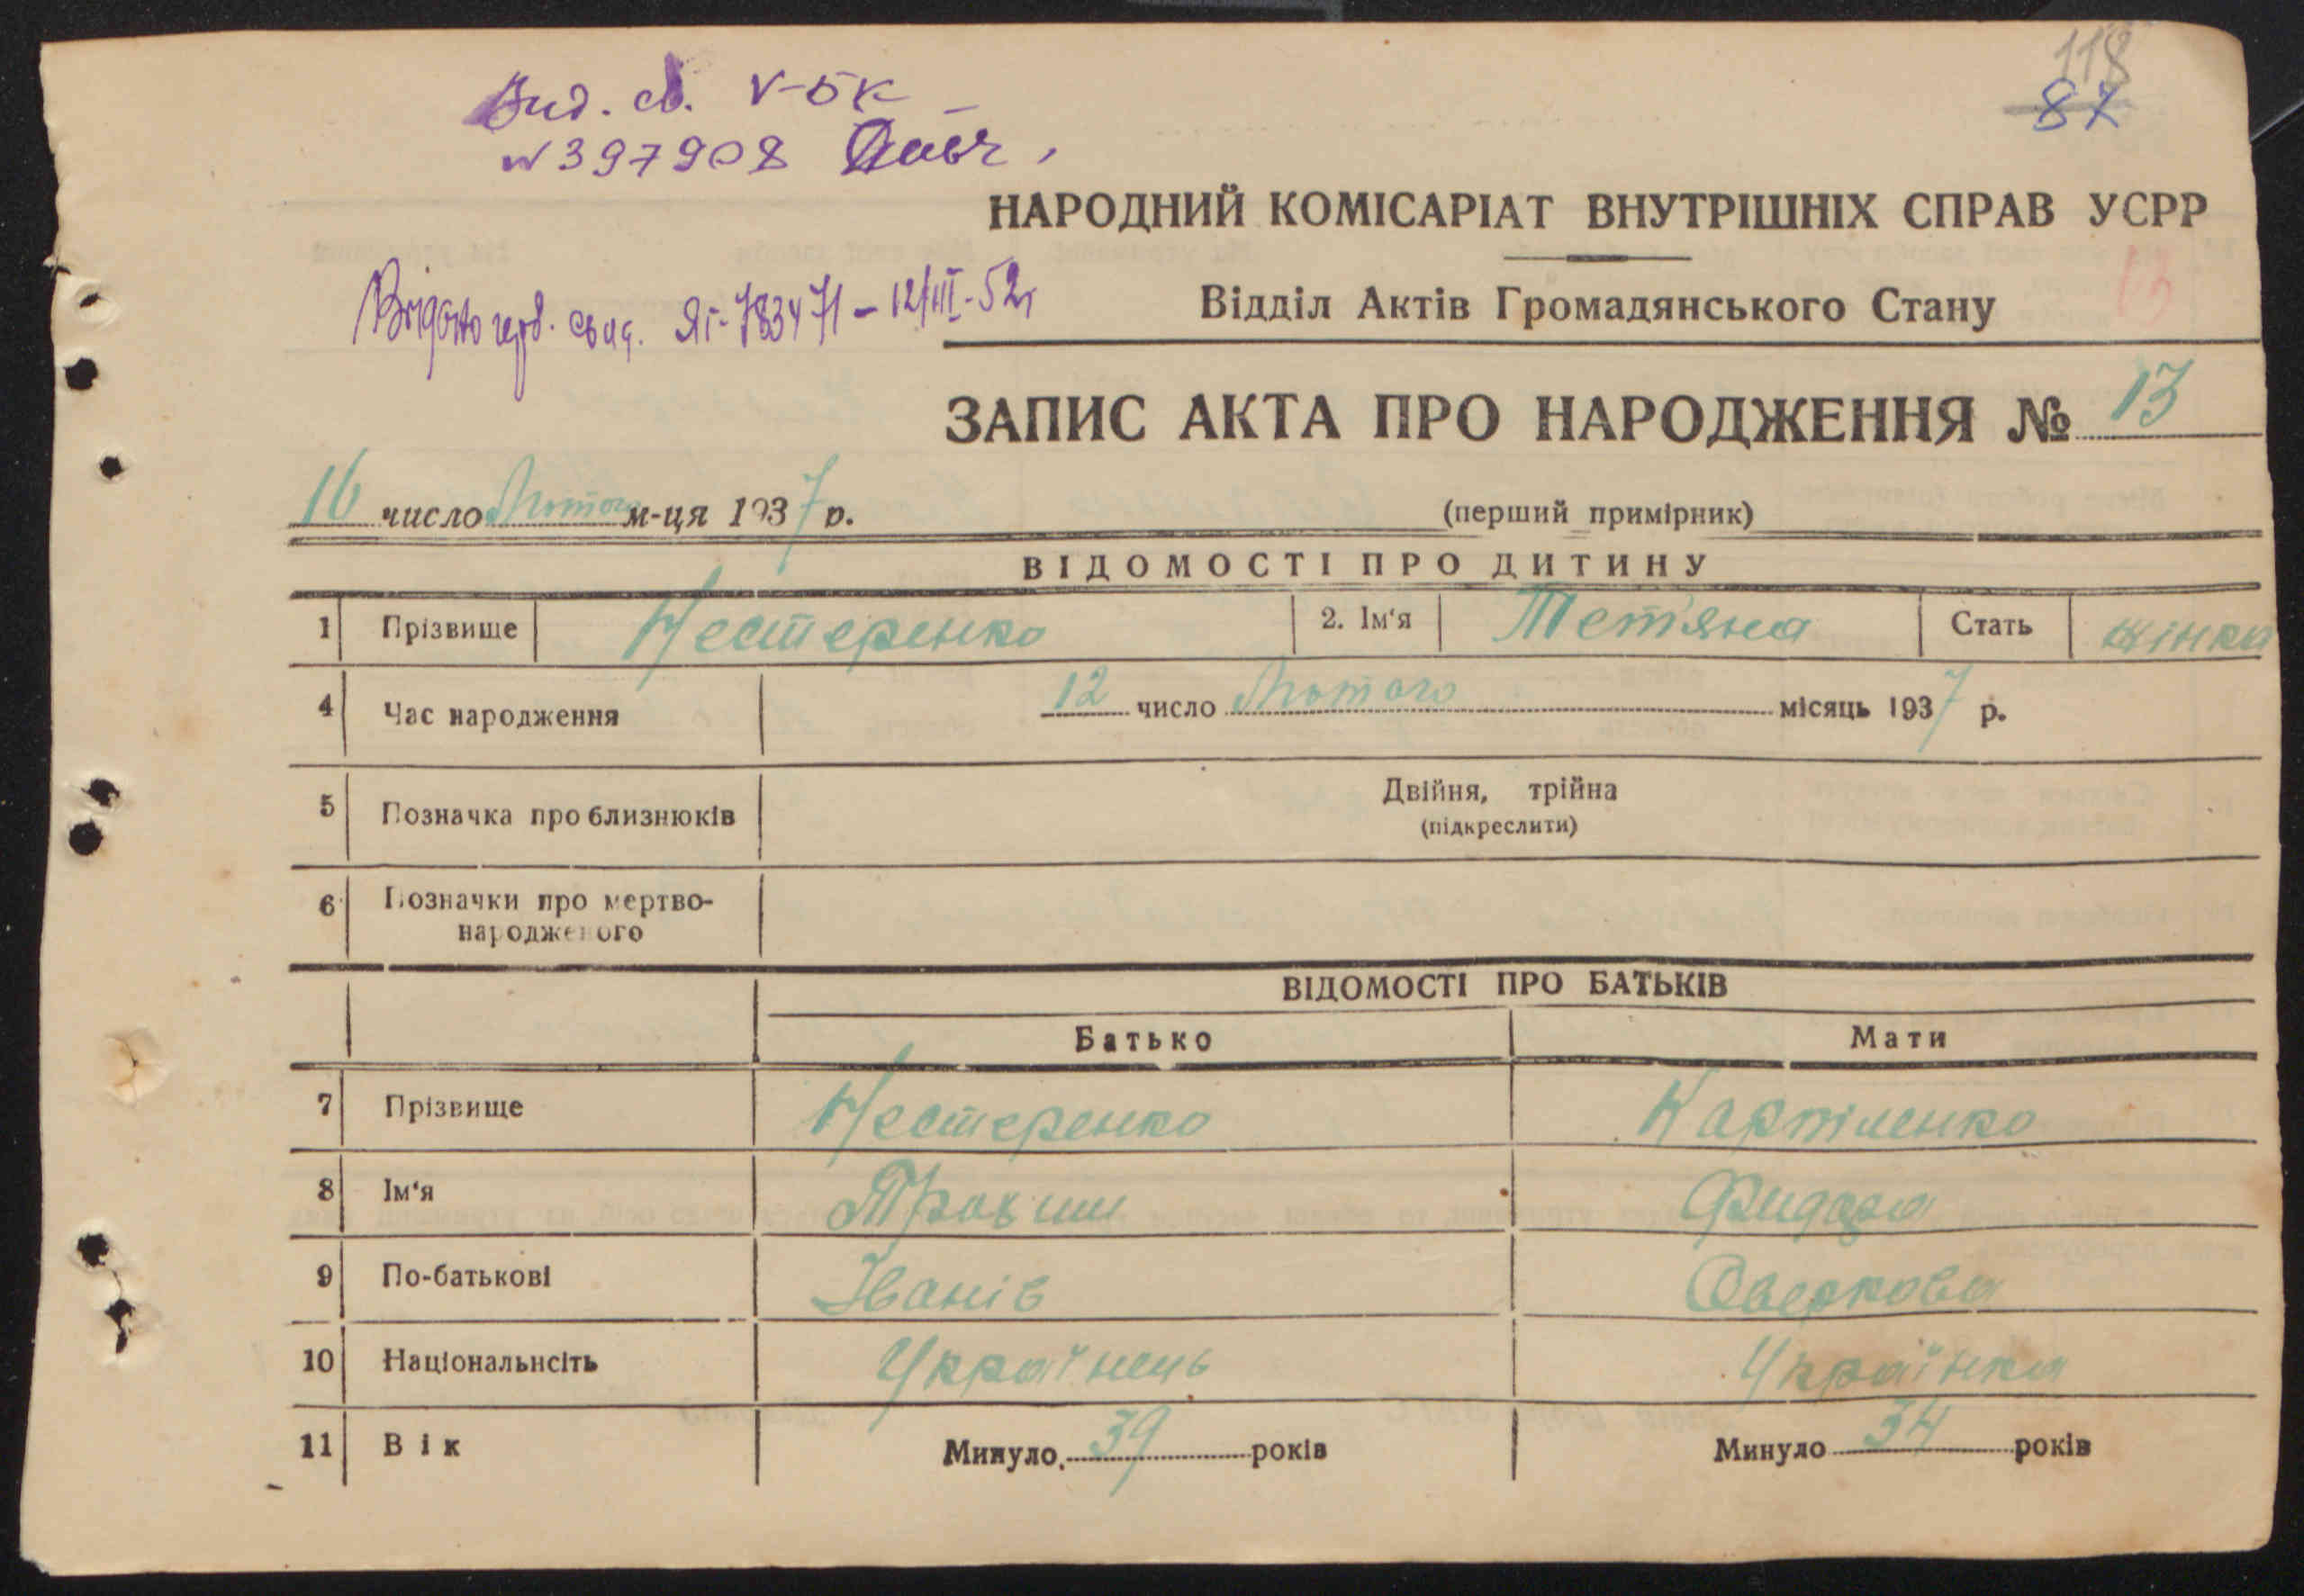 118
87
Вид. св. V-БК
№ 397908
НАРОДНИЙ КОМІСАРІАТ ВНУТРІШНІХ СПРАВ УСРР
Відділ Актів Громадянського Стану
Видано 783471 – 12/III-52г
ЗАПИС АКТА ПРО НАРОДЖЕННЯ № 13
16 число Лютого м-ця 1937 р.
(перший примірник)
ВІДОМОСТІ ПРО ДИТИНУ
1 Прізвище Нестеренко 2. Ім'я Тетяна Стать жінка
4 Час народження 12 число Лютого місяць 1937 р.
5 Позначка про близнюків Двійня, трійна
(підкреслити)
6 Позначки про мертво-
народженого
ВІДОМОСТІ ПРО БАТЬКІВ
Батько Мати
7 Прізвище Нестеренко
8 Ім'я
9 По-батькові Іванів Оверкова
10 Національнсіть Українець Українка
11 Вік Минуло 39 років Минуло 34 років